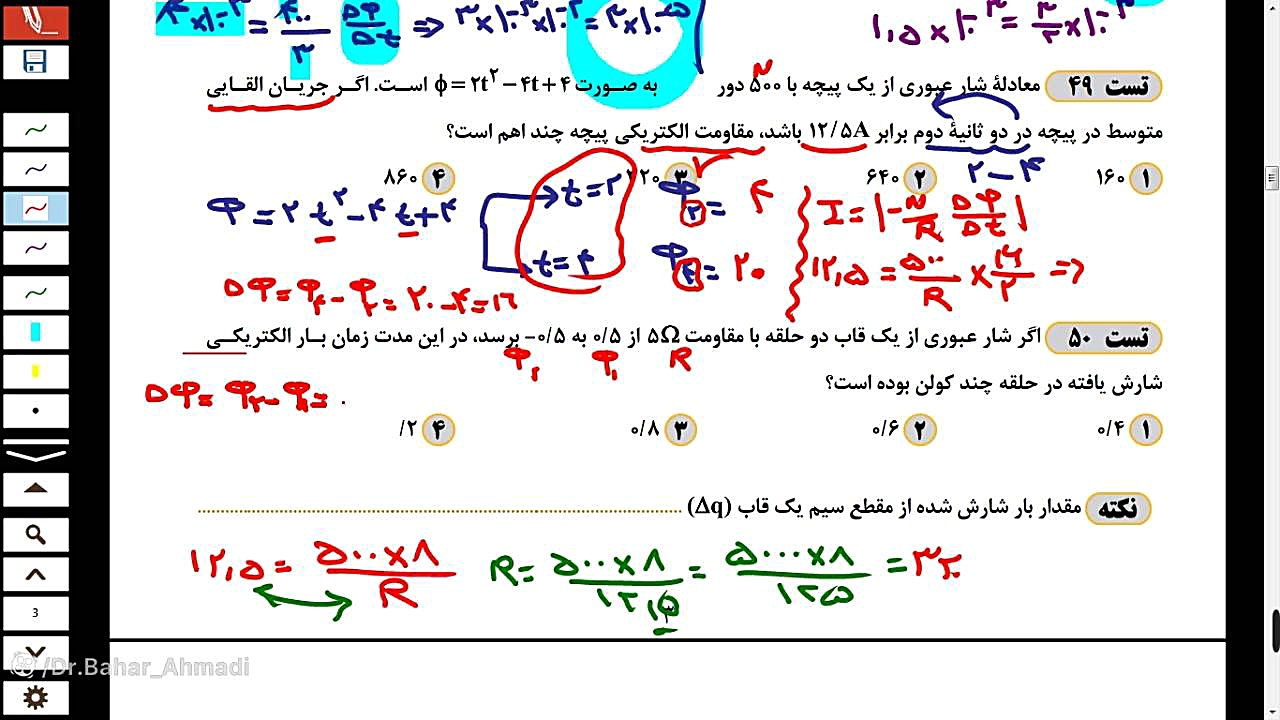 ۴×۱۰⁻³ = ۴۰۰/۳ ΔΦ/Δt ⇒ ۳×۱۰⁻³×۱۰⁻²=۳×۱۰⁻⁵
۱,۵×۱۰⁻³ = ۳/۲×۱۰⁻³
تست ۴۹ معادلهٔ شار عبوری از یک پیچه با ۵۰۰ دور به صورت ϕ = ۲t² − ۴t + ۴ است. اگر جریان القایی
N
متوسط در پیچه در دو ثانیهٔ دوم برابر ۱۲/۵A باشد، مقاومت الکتریکی پیچه چند اهم است؟
۱ ۱۶۰ ۲ ۶۴۰ ۳ ۳۲۰ ۴ ۸۶۰
۲ − ۴
φ = ۲t² − ۴t + ۴ t = ۲ φ۲ = ۴ I = |−N/R Δφ/Δt|
t = ۴ φ۴ = ۲۰ ۱۲,۵ = ۵۰۰/R × ۱۶/۲ ⇒
Δφ = φ۴ − φ۲ = ۲۰ − ۴ = ۱۶
تست ۵۰ اگر شار عبوری از یک قاب دو حلقه با مقاومت ۵Ω از ۰/۵ به ۰/۵− برسد، در این مدت زمان بار الکتریکی
R φ۱ φ۲
شارش یافته در حلقه چند کولن بوده است؟
Δφ = φ۲ − φ۱ =
۱ ۰/۴ ۲ ۰/۶ ۳ ۰/۸ ۴ /۲
نکته مقدار بار شارش شده از مقطع سیم یک قاب (Δq)
۱۲,۵ = ۵۰۰×۸/R R = ۵۰۰×۸/۱۲,۵ = ۵۰۰۰×۸/۱۲۵ =
3
/Dr.Bahar_Ahmadi